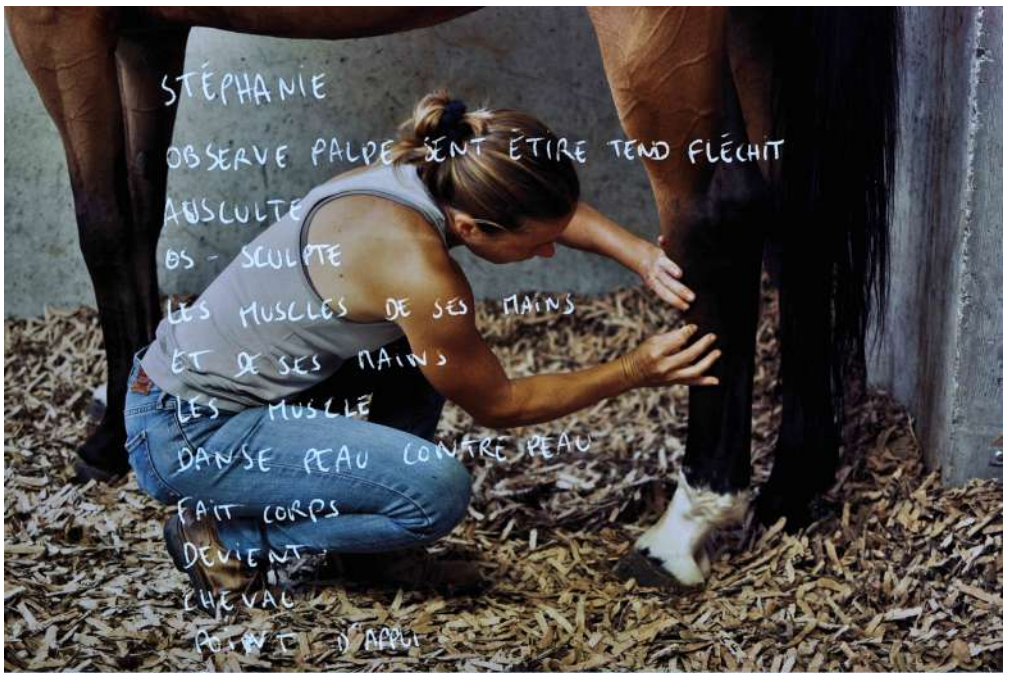 STÉPHANIE
OBSERVE PALPE SENT ÉTIRE TEND FLÉCHIT
AUSCULTE
OS - SCULPTE
LES MUSCLES DE SES MAINS
ET DE SES MAINS
LES MUSCLE
DANSE PEAU CONTRE PEAU
FAIT CORPS
DEVIENT
CHEVAL
POINT D'APPUI